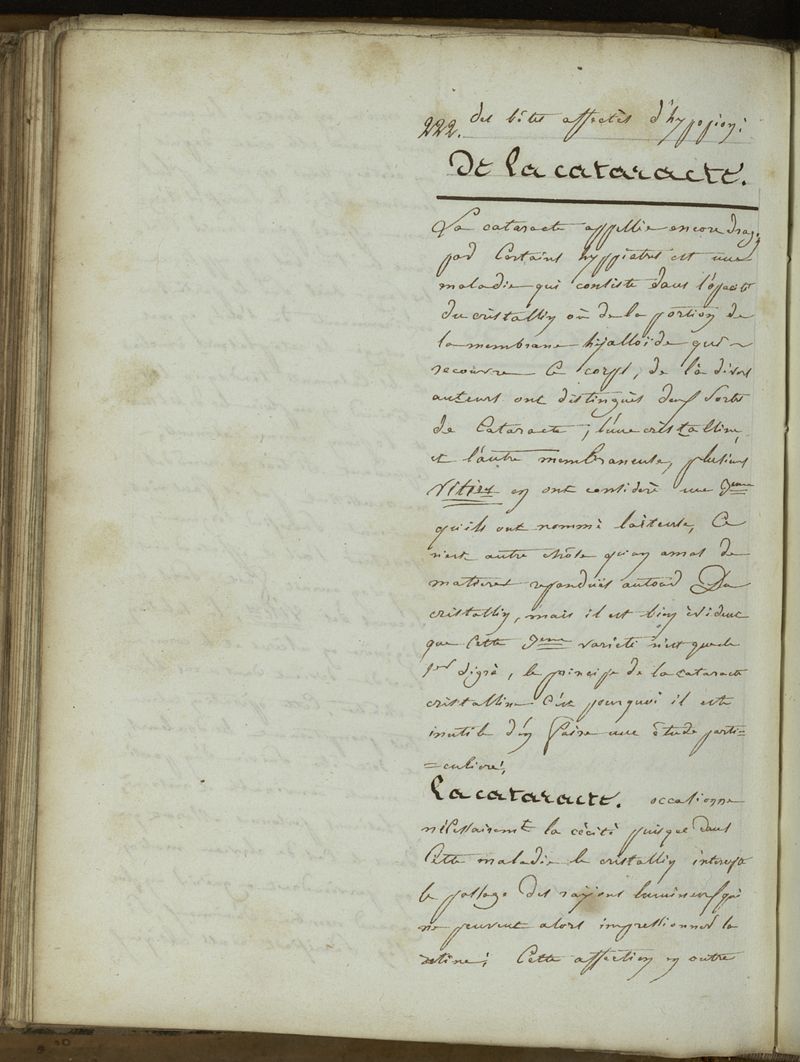 222. des bêtes affectés d'hypopion.
De la cataracte.
La cataracte appellée encore drag.
par Certains hyppiatres est une
maladie qui consiste dans l'opacité
du cristallin où de la portion de
la membrane hijalloïde qui
recouvre Ce corps, de là divers
auteurs ont distingués deux Sortes
de Cataracte, l'une cristalline,
et l'autre membraneuse, plusieurs
Vétres en ont considéré une 3eme
qu'ils ont nommé laiteuse, Ce
n'est autre chose qu'un amas de
matieres repandües autour Du
cristallin, mais il est bien évident
que Cette 3eme varieté n'est que le
1er dégré, le principe de la cataracte
cristalline C'est pourquoi il est
inutile d'en faire une étude parti=
=culiere,
La cataracte. occasionne
nécessairement la cécité puisque dans
Cette maladie le cristallin intercepte
le passage des rayions lumineux qui
ne peuvent alors impressionner la
rétine; Cette affection en outre